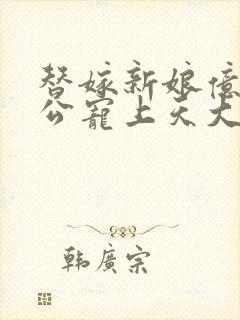 替嫁新娘億
公寵上天大
韓廣宗